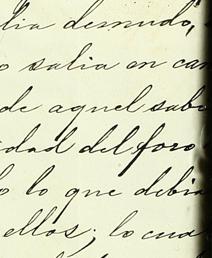 lia desnudo,
o salia en can
de aquel sabo
idad del foro
o lo que debia
ellos; lo cua